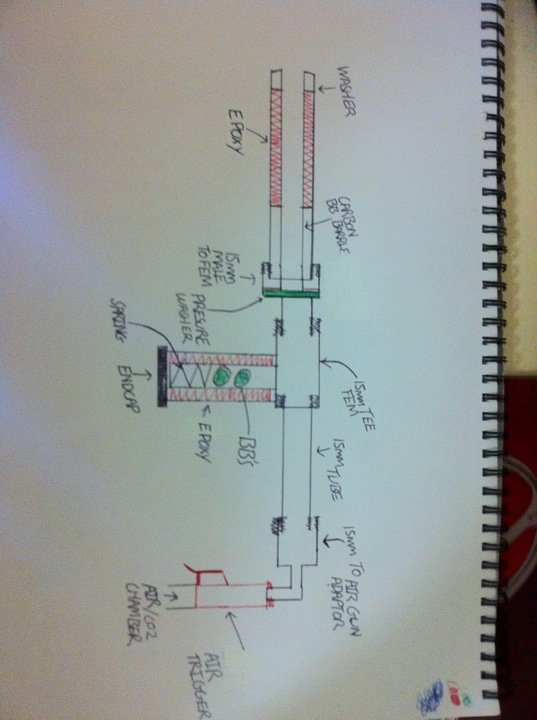 WASHER
EPOXY
CARBON
BB BARRLE
15mm
MALE
TO FEM
PRESURE
WASHER
SPRING
ENDCAP
EPOXY
BB'S
15mm TEE
FEM
15mm TUBE
15mm TO AIR GUN
ADAPTOR
AIR/CO2
CHAMBER
AIR
TRIGGER